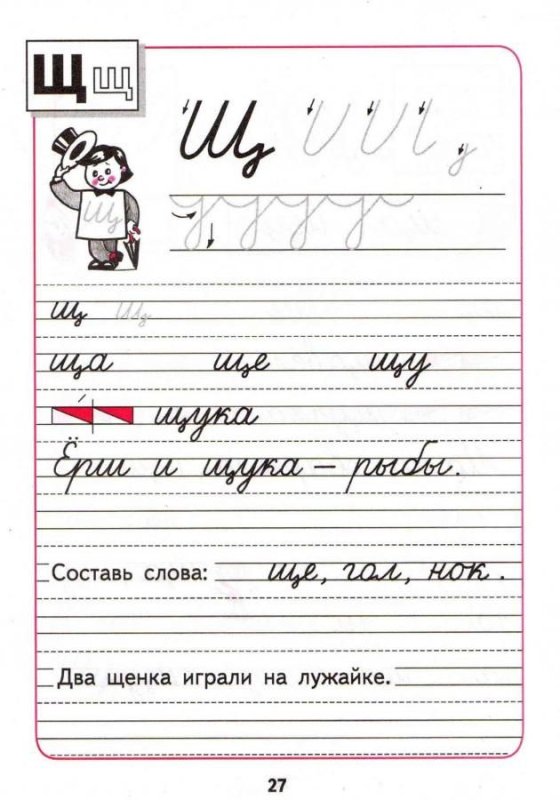 Щ щ
Щ
Щ
щ Щ
ща ще щу
щука
Ёрш и щука – рыбы.
Составь слова: ще, гол, нок.
Два щенка играли на лужайке.
27